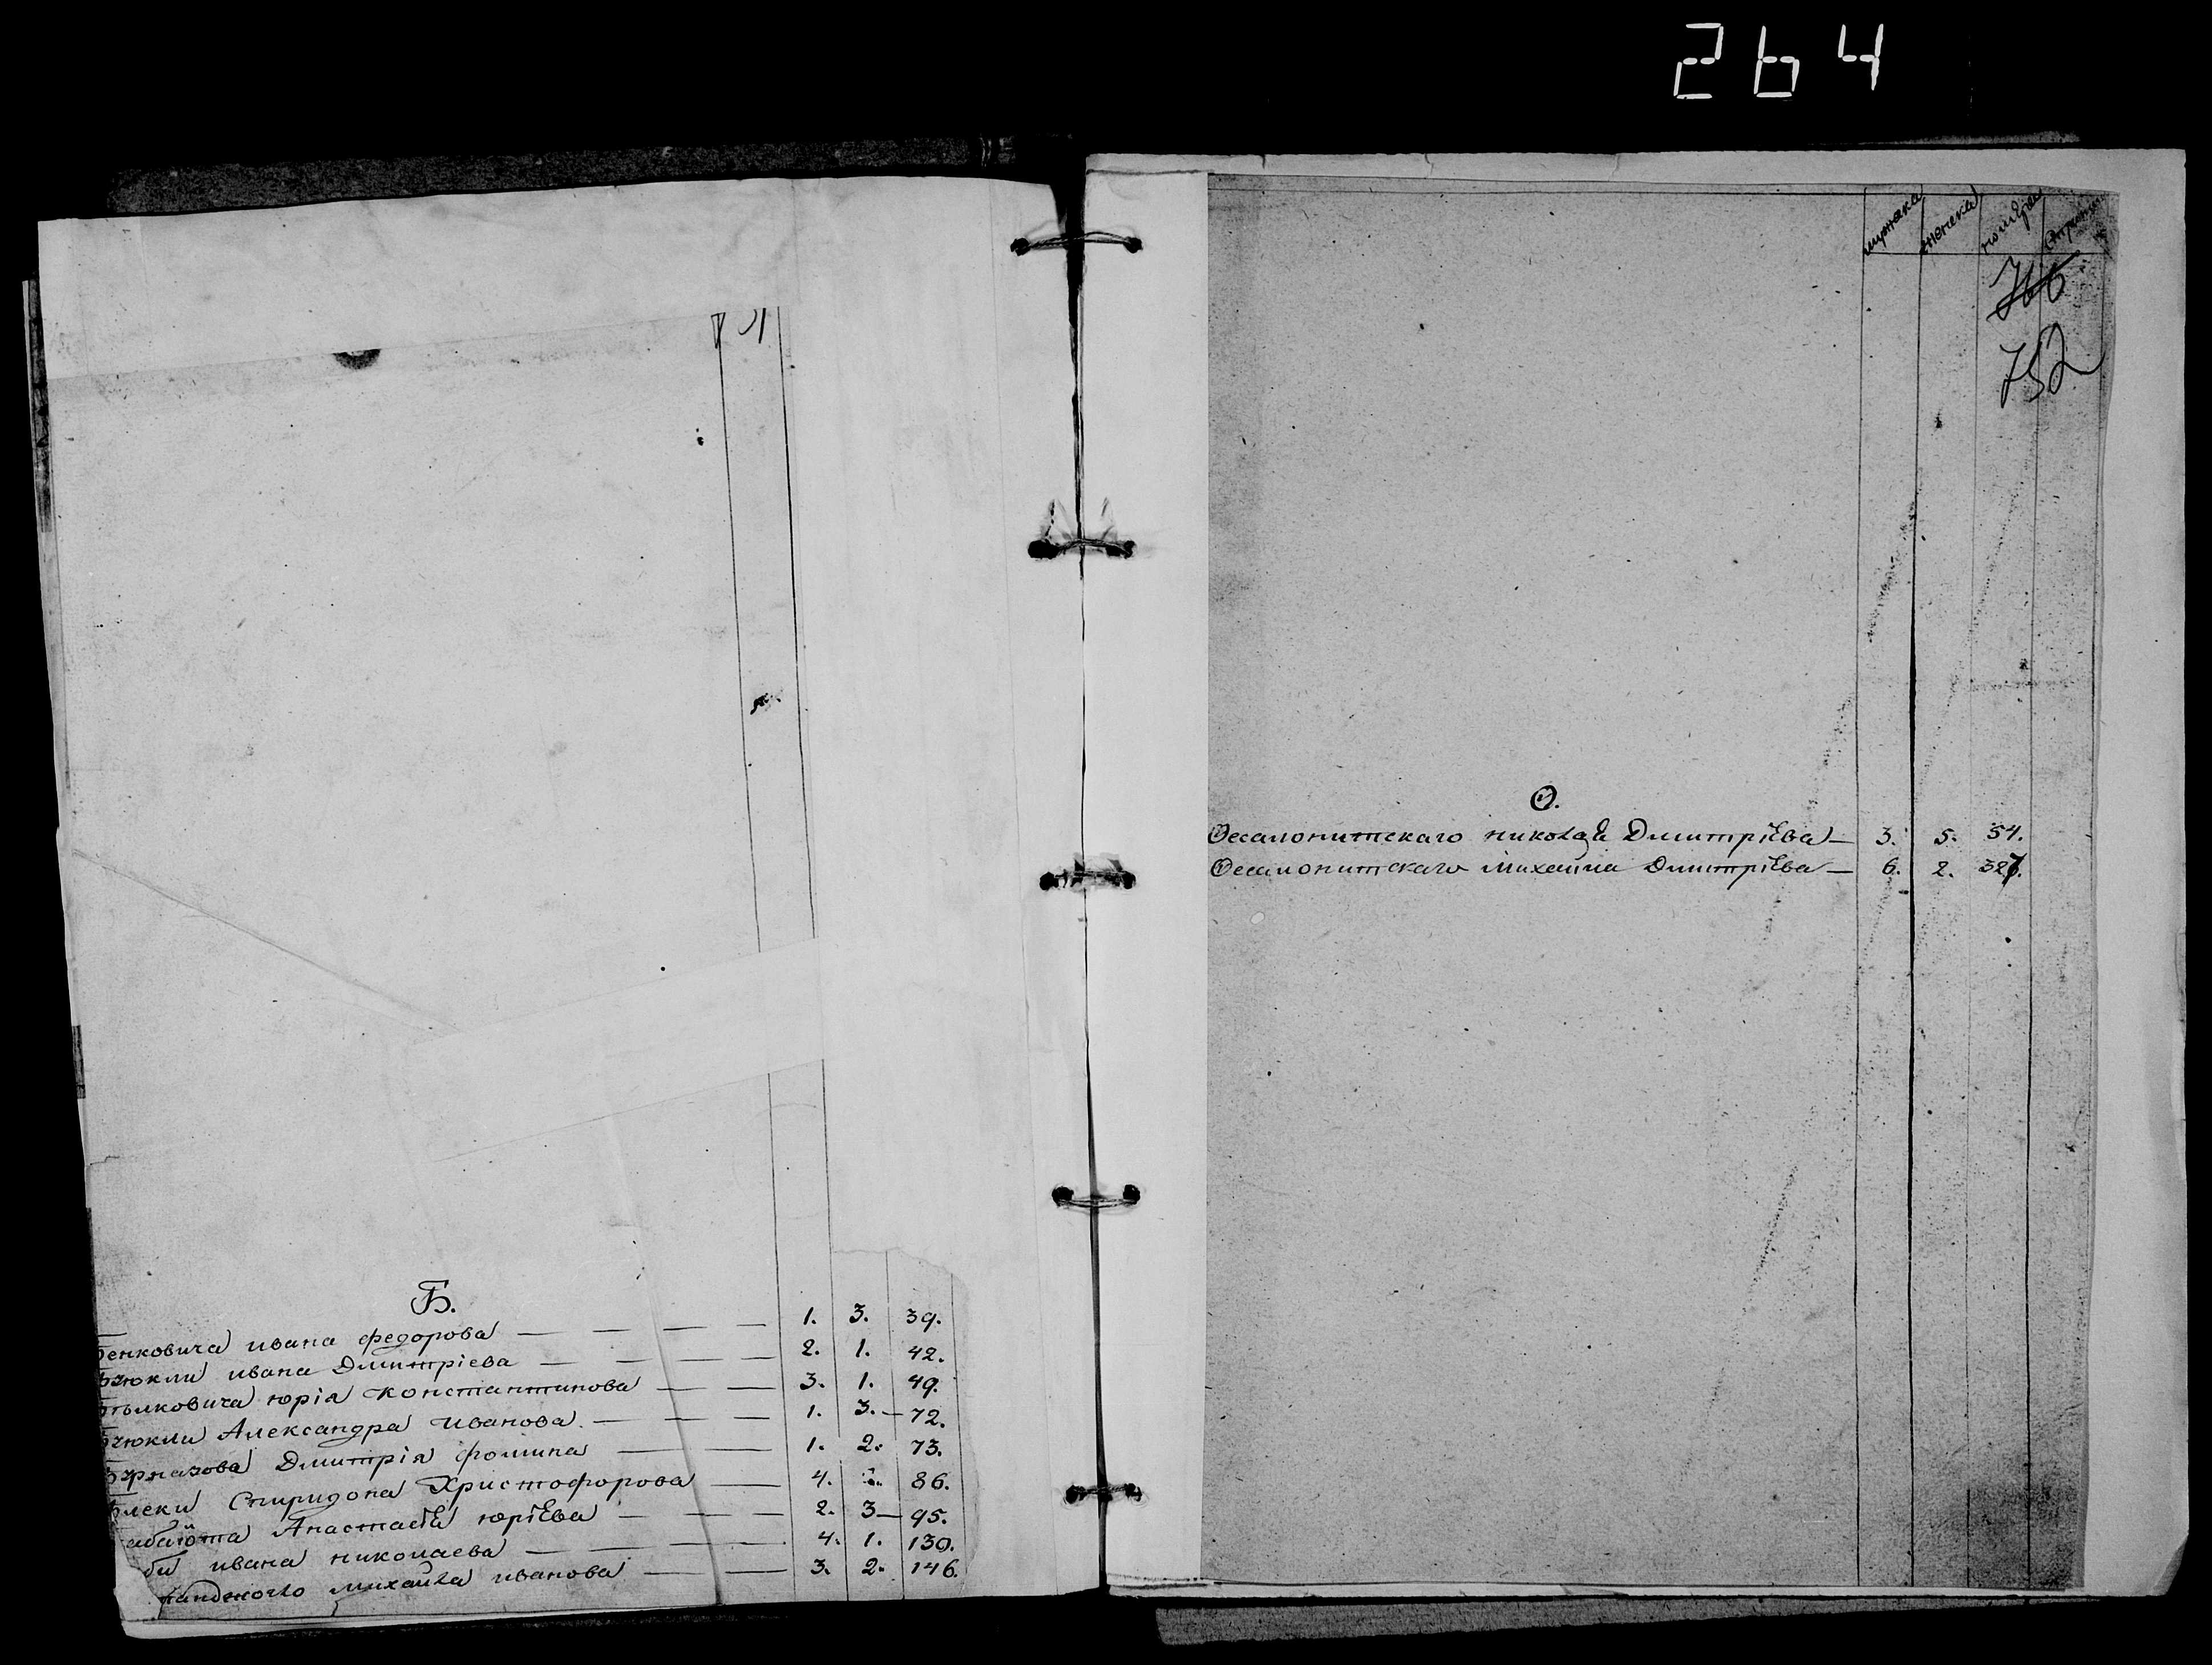 264
Б.
Бенковича ивана федорова — — — — 1. 3. 39.
Бзюкли ивана Дмитріева — — — — 2. 1. 42.
юрія константинова — — 3. 1. 49.
Бзюкли Александра иванова — — — 1. 3. — 72.
Дмитрія фомина — — 1. 2. 73.
Спиридона Христофорова — 4. 86.
Анастасѣя юрїева — — — 2. 3 — 95.
ивана николаева — — — 4. 1. 130.
михайла иванова — — 3. 2. 146.
мужеска женска номѣра страницы
766
752
Ѳ.
Ѳесалонитскаго николая Дмитрїева — 3. 5. 54.
Ѳесалонитскаго михайла Дмитрїева — 6. 2. 327.